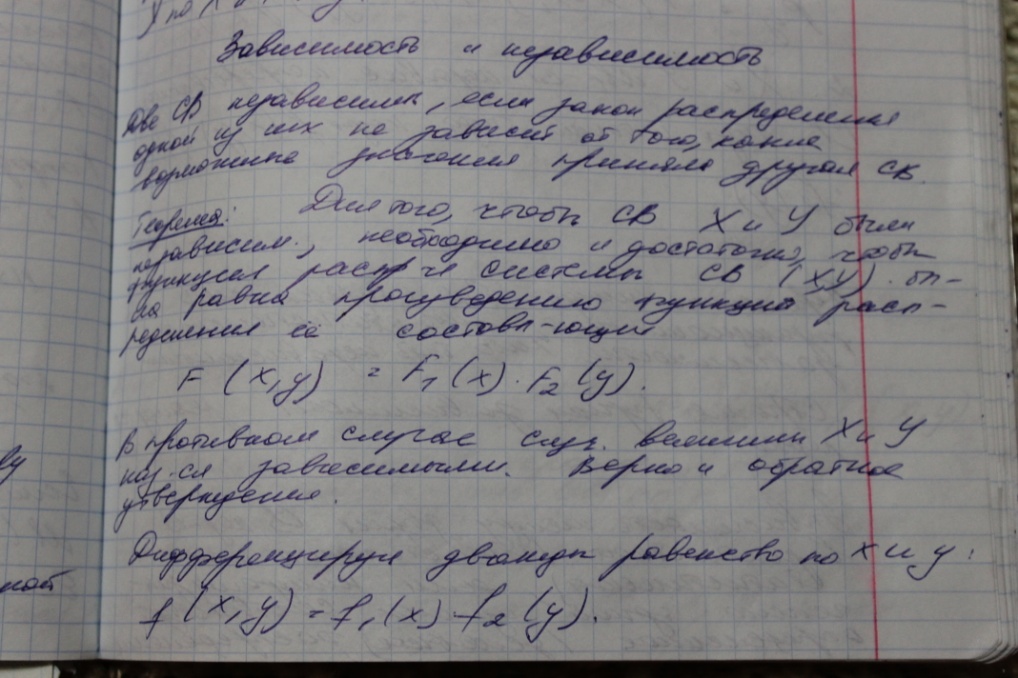 X по X и
Зависимость и независимость
Две СВ независимы, если закон распределения
одной из них не зависит от того, какие
возможные значения приняла другая СВ.
Теорема: Для того, чтобы СВ X и Y были
независим., необходимо и достаточно, чтобы
функция распр-я системы СВ (X,Y) бы-
ла равна произведению функций расп-
ределения её составл-ющих
F (x,y) = F₁(x) · F₂(y).
В противном случае случ. величины X и Y
наз-ся зависимыми. Верно и обратное
утверждение.
Дифференцируя дважды равенство по x и y:
f (x,y) = f₁(x) · f₂(y).
ной